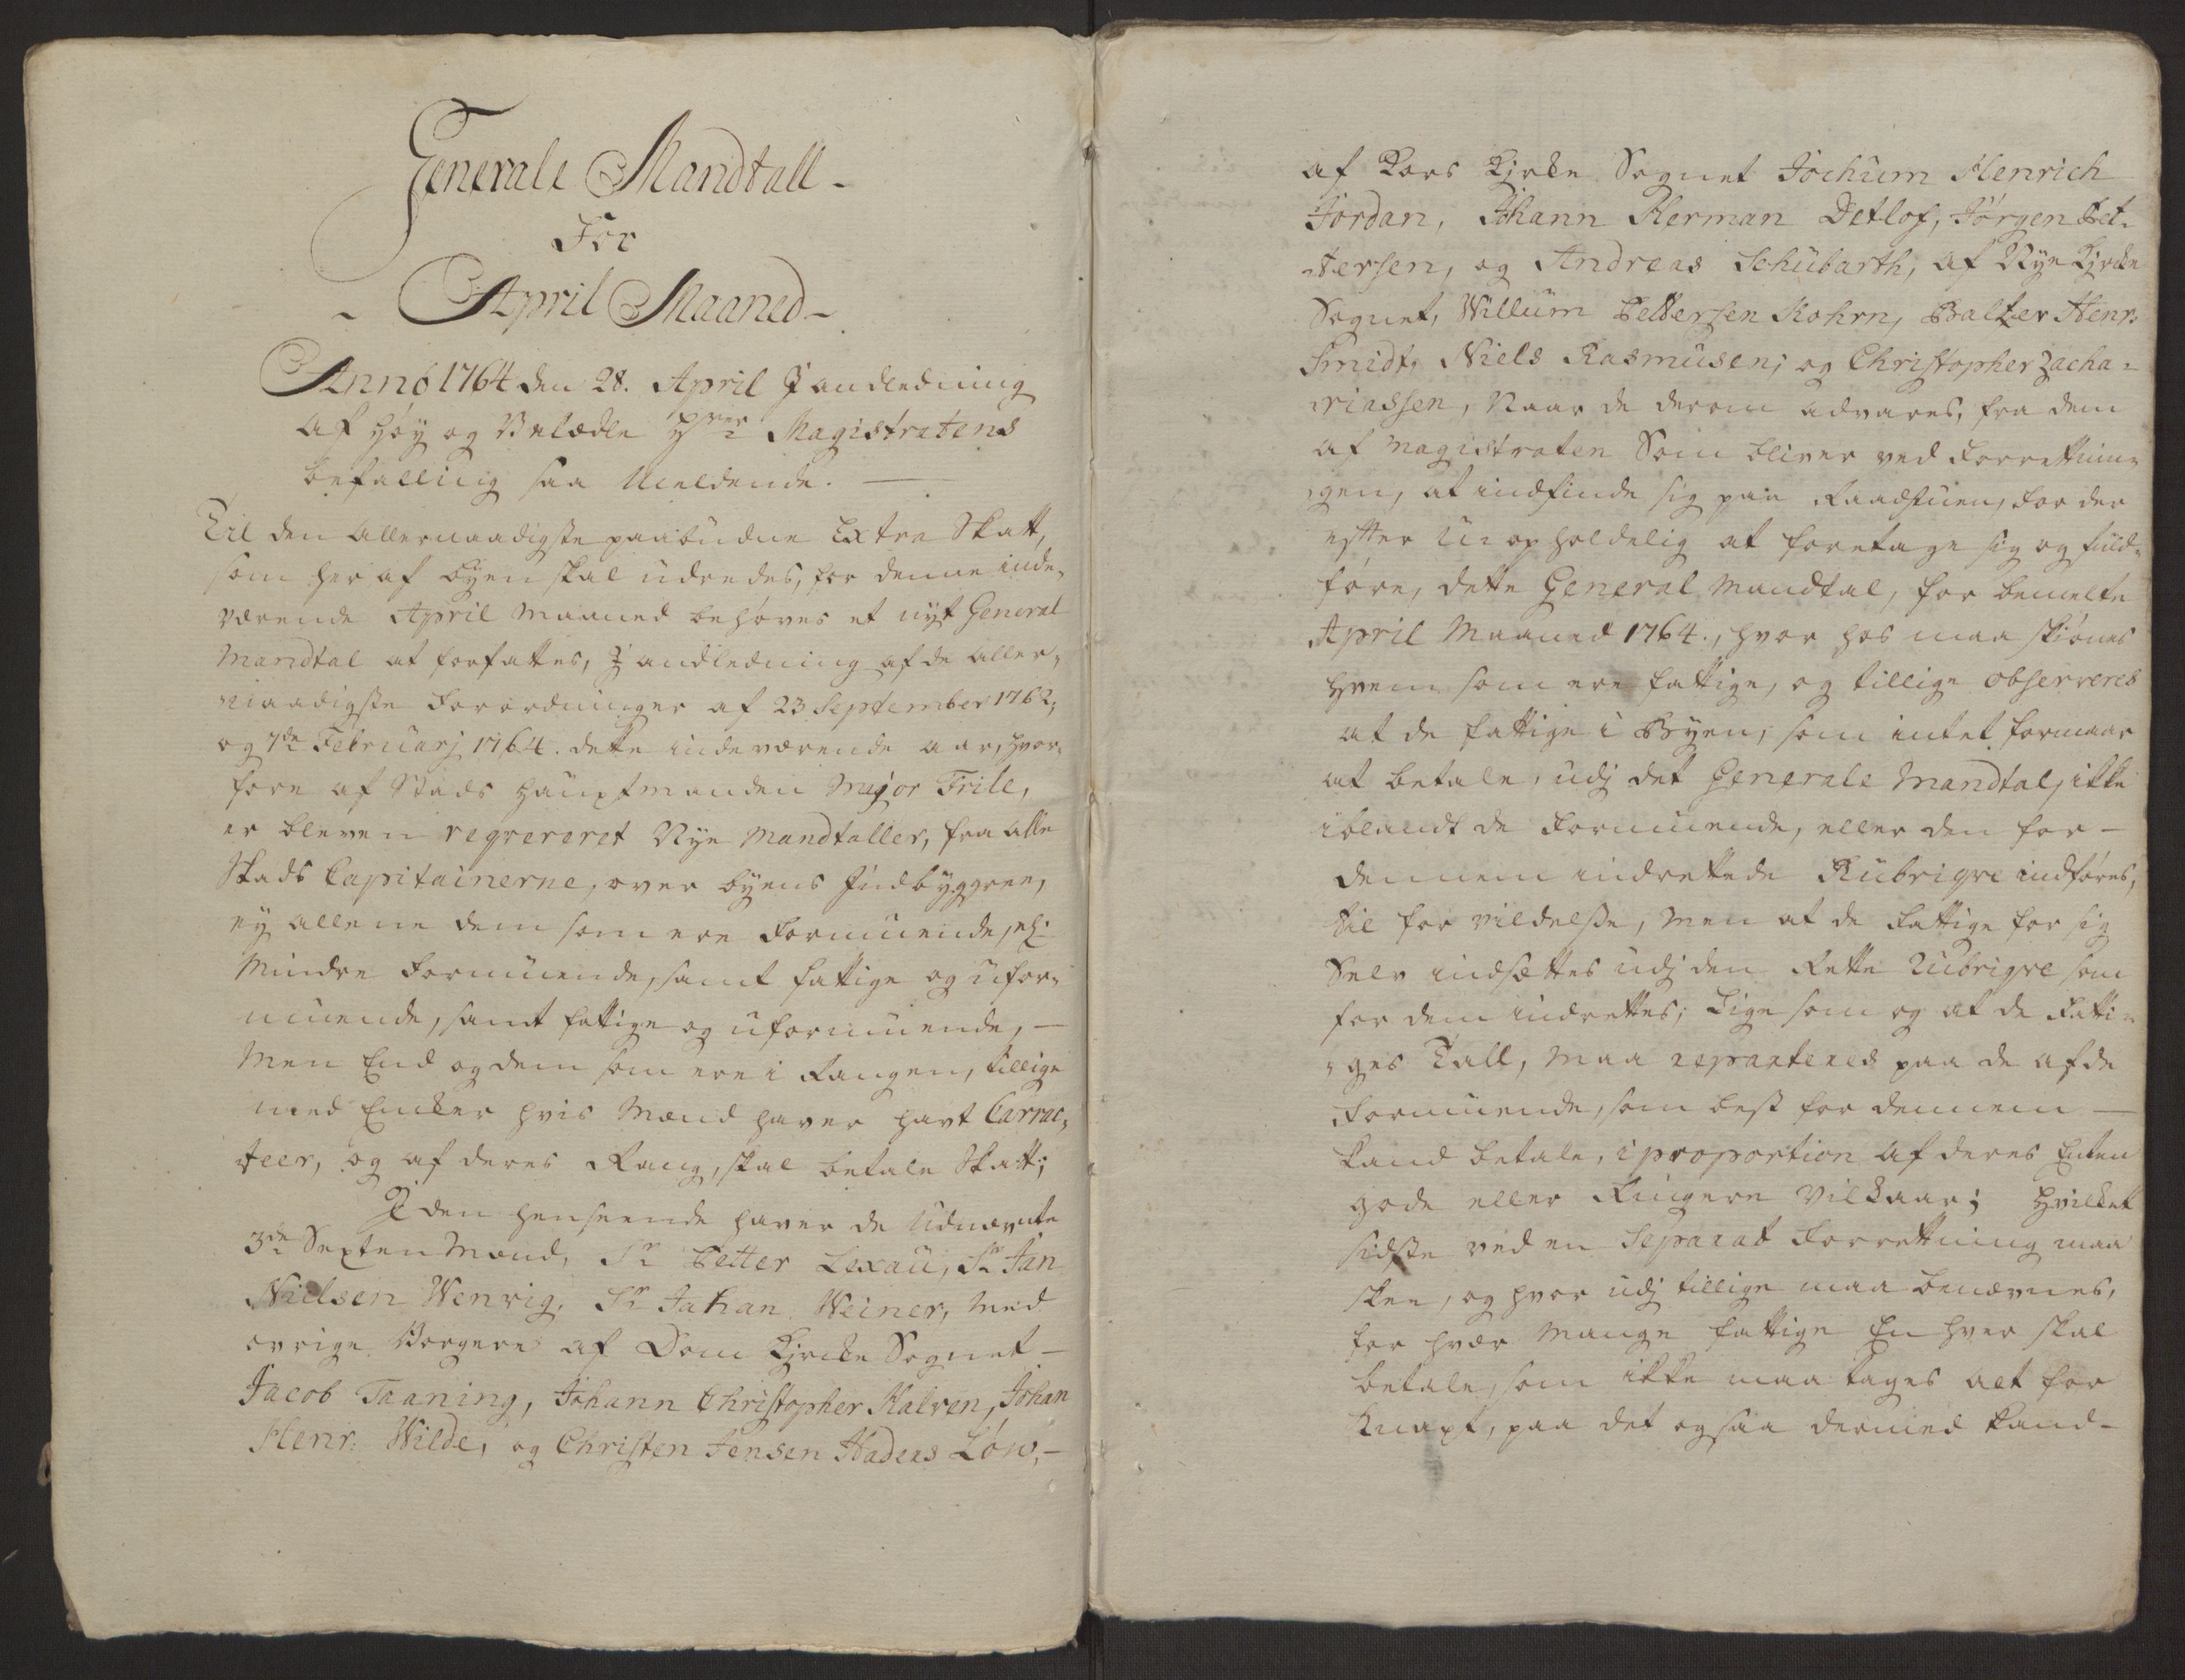 Generale Mandtall -
For
- April Maaned -
Anno 1764 den 28. April J andledning
af Høy og Velædle Hrer Magistratens
befalling saa Meldende. —
Til den Allernaadigste paabudne Extra Skatt,
som her af Byen skal udredes, for denne inde,
værende April Maaned behøves et nyt General
Mandtal at forfattes, J andledning af de aller,
naadigste Forordninger af 23 September 1762,
og 7de Februarj 1764. dette indeværende aar, hvor,
fore af Stads Hauptmanden Major Friile,
er bleven reqvireret Nye Mandtaller, fra alle
Stads Capitainerne, over byens Jndbyggere,
ey allene dem som ere Formuende,
Mindre Formuende, samt fattige og ufor,
muende, samt fattige og uformuende, —
Men End og dem som ere i Rangen, tillige
med Encker hvis Mænd haver havt Carrac,
teer, og af deres Rang, skal betale Skatt;
J den henseende haver de Udnævnte
3de Sexten Mænd, Sr Petter Lexau, Sr Jan
Nielsen Wenrig, Sr Johan Weiner, med
øvrige Borgere af Dom Kircke Sognet —
Jacob Taaning, Johann Christopher Kalven, Johan
Henr: Wilde, og Christen Jensen Haders Löw, —
af Kors Kircke Sognet Jochum Henrich
Jordan, Johann Herman Detlof, Jørgen Pet-
tersen, og Andreas Schubarth, af Nye Kircke
Sognet, Willum Pettersen Kohrn, Baltzer Henr:
Smidt, Niels Rasmusen, og Christopher Zacha=
riassen, Naar de derom advares, fra dem
af Magistraten Som bliver ved Forretnin=
gen, at indfinde sig paa Raadstuen, for der
efter Uopholdelig at foretage sig og fuld=
føre, dette General Mandtal, for bemelte
April Maaned 1764., hvor hos maa skiønes
Hvem som ere fattige, og tillige observeres
at de fattige i Byen, som intet formaar
at betale, udj det Generale Mandtal, ikke
iblandt de Formuende, eller den for —
dennem indrettede Rubriqve indføres,
til for vildelse, men at de Fattige for sig
Selv indsættes udj den Rette Rubriqve som
for dem indrettes; Lige som og at de Fatti=
ges Tall, maa reparteres paa de af de
Formuende, som best for dennem —
kand betale, i proportion af deres Enten
gode eller Ringere Vilkaar; Hvilket
sidste ved en Separat Forrettning maa
skee, og hvor udj tillige maa benævnes,
for hvor Mange fattige En hver skal
betale, som ikke maa tages alt for
knapt, paa det ogsaa dermed kand -